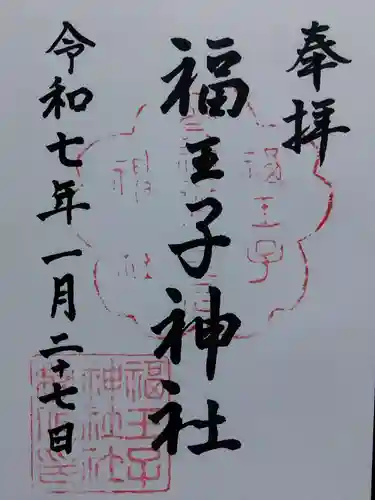 奉拝
福王子神社
令和七年一月二十七日
福王子
神社
福王子
神社社